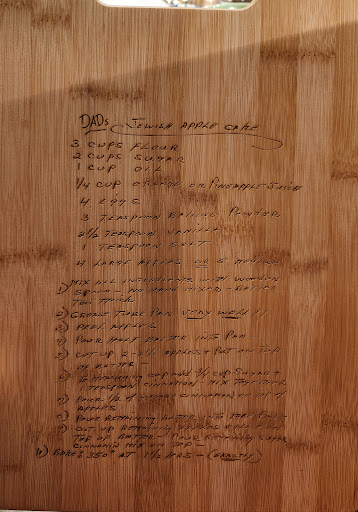 DADS JEWISH APPLE CAKE
3 CUPS FLOUR
2 CUPS SUGAR
1 CUP OIL
1/4 CUP ORANGE OR PINEAPPLE JUICE
4 EGGS
3 TEASPOON BAKING POWDER
2 1/2 TEASPOON VANILLA
1 TEASPOON SALT
4 LARGE APPLES OR 5 MEDIUM
1) MIX ALL INGREDIENTS WITH WOODEN
SPOON - MIXED - BATTER
THICK
2) GREASE TUBE PAN VERY WELL!!
3) PEEL APPLES
4) POUR HALF BATTER INTO PAN
5) CUT UP APPLES & PUT ON TOP
OF BATTER -
6) IN MEASURING CUP ADD CUP SUGAR &
1 TEASPOON CINNAMON - MIX TOGETHER
7) POUR 1/2 OF CINNAMON ON TOP OF
APPLES
8) POUR REMAINING BATTER INTO PAN -
9) CUT UP REMAINING APPLES
TOP OF BATTER - POUR REMAINING SUGAR
CINNAMON MIX ON TOP -
BAKE @ 350° AT 1 1/2 HRS - (EXACTLY)